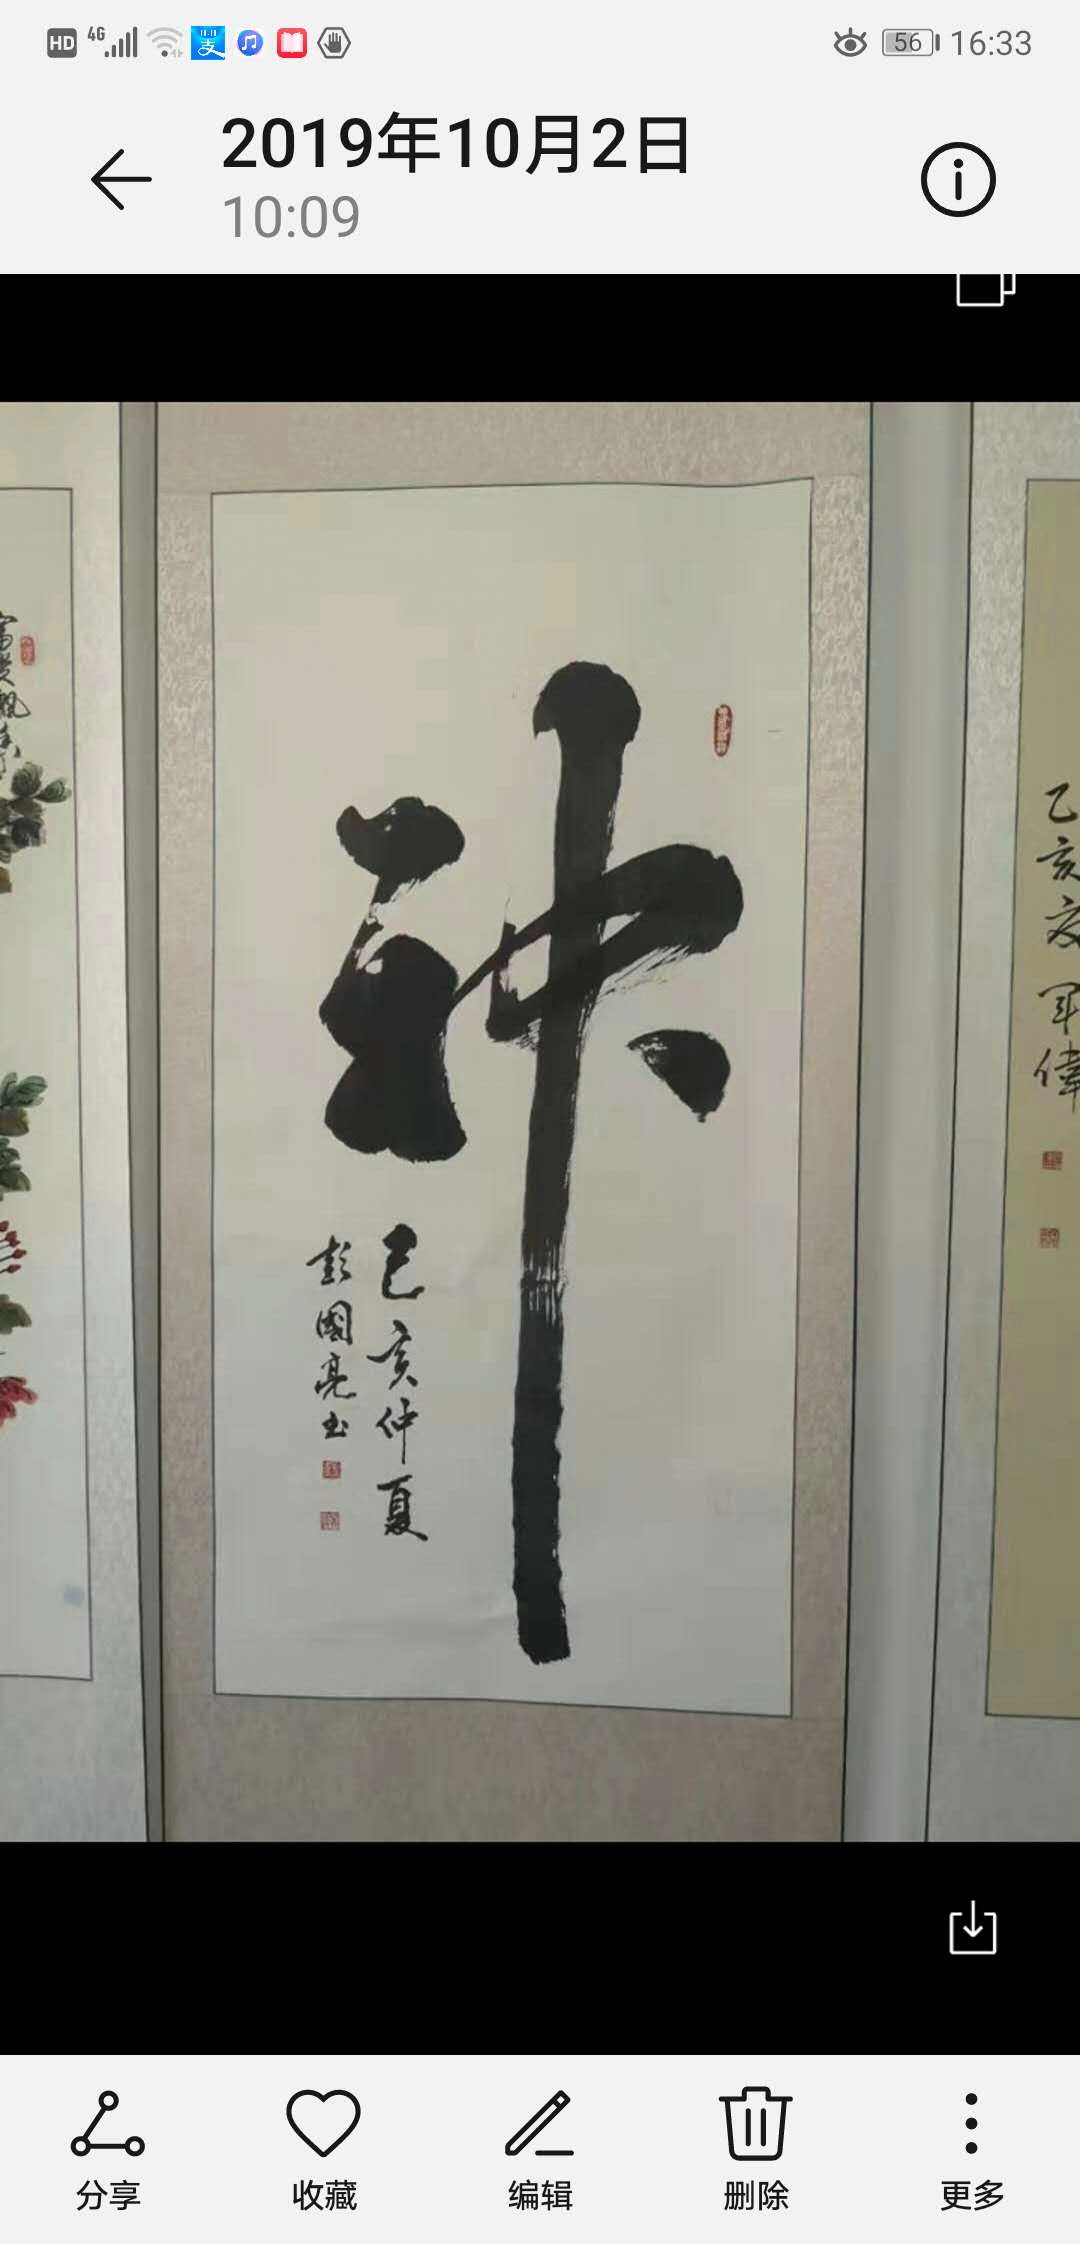 HD 4G 56 16:33
2019年10月2日
10:09
神
己亥仲夏
彭國亮书
乙亥
军偉
分享 收藏 编辑 删除 更多